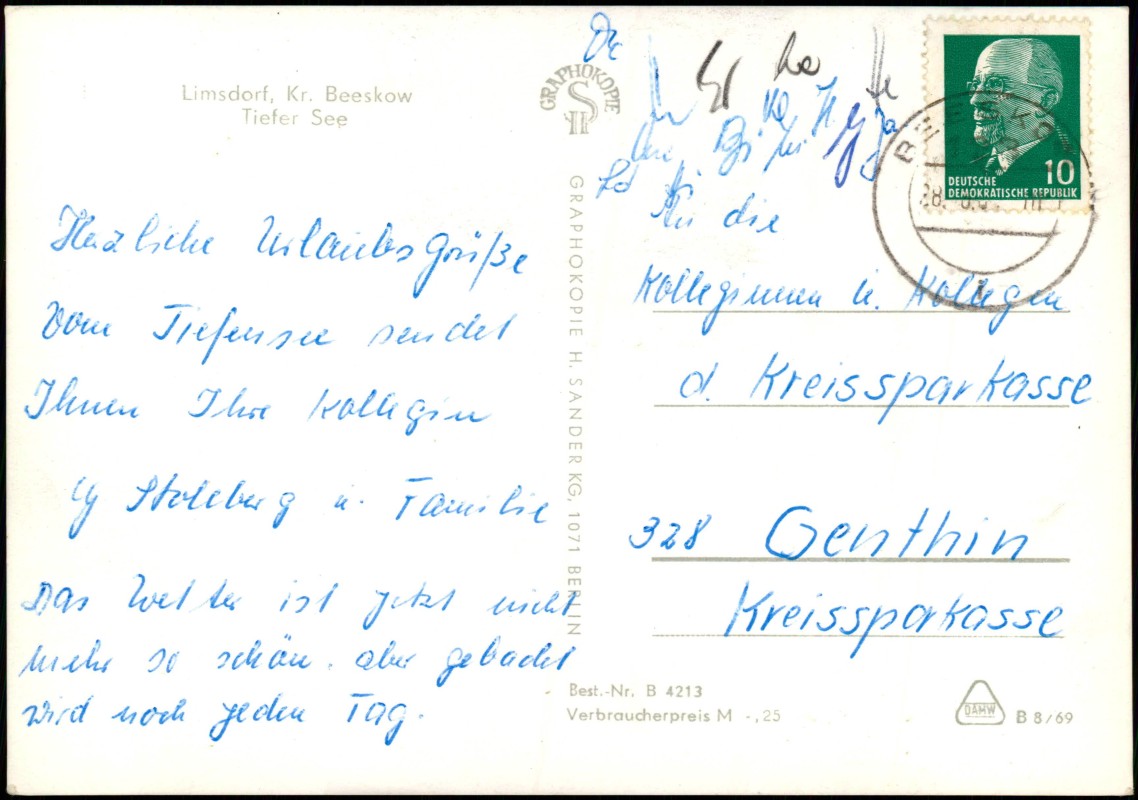 Limsdorf, Kr. Beeskow
Tiefer See
Herzliche Urlaubsgrüße
vom Tiefensee sendet
Ihnen Ihre Kollegin
Stolberg u. Familie
Das Wetter ist jetzt nicht
mehr so schön, aber gebadet
wird noch jeden Tag.
GRAPHOKOPIE
GRAPHOKOPIE H. SANDER KG, 1071 BERLIN
An die
Kolleginnen u. Kollegen
d. Kreissparkasse
328 Genthin
Kreissparkasse
10
DEUTSCHE
DEMOKRATISCHE REPUBLIK
Best.-Nr. B 4213
Verbraucherpreis M -,25
DAHW
B 8/69